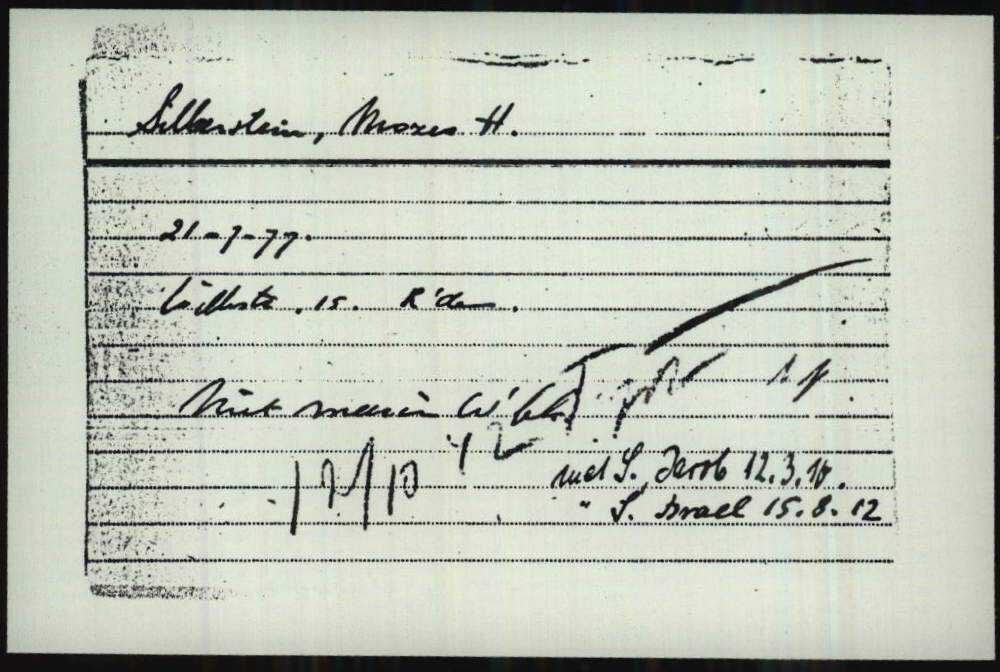 Silberstein, Mozes H.
21-7-77.
15. R'dam.
Niet meer in W'bk
12/10 42
met S. Jacob 12.3.10.
" S. Israel 15.8.12